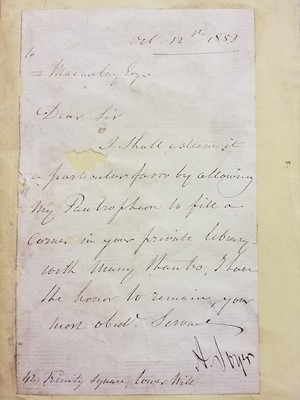 Oct. 12th 1853
to
= Macaulay Esqr
Dear Sir
I Shall esteem it
a particular favor by allowing
My Pantropheon to fill a
corner in your private library
with Many thanks, I have
the honor to remain, your
most obedt. Servant
A. Soyer
42. Trinity Square, Tower Hill